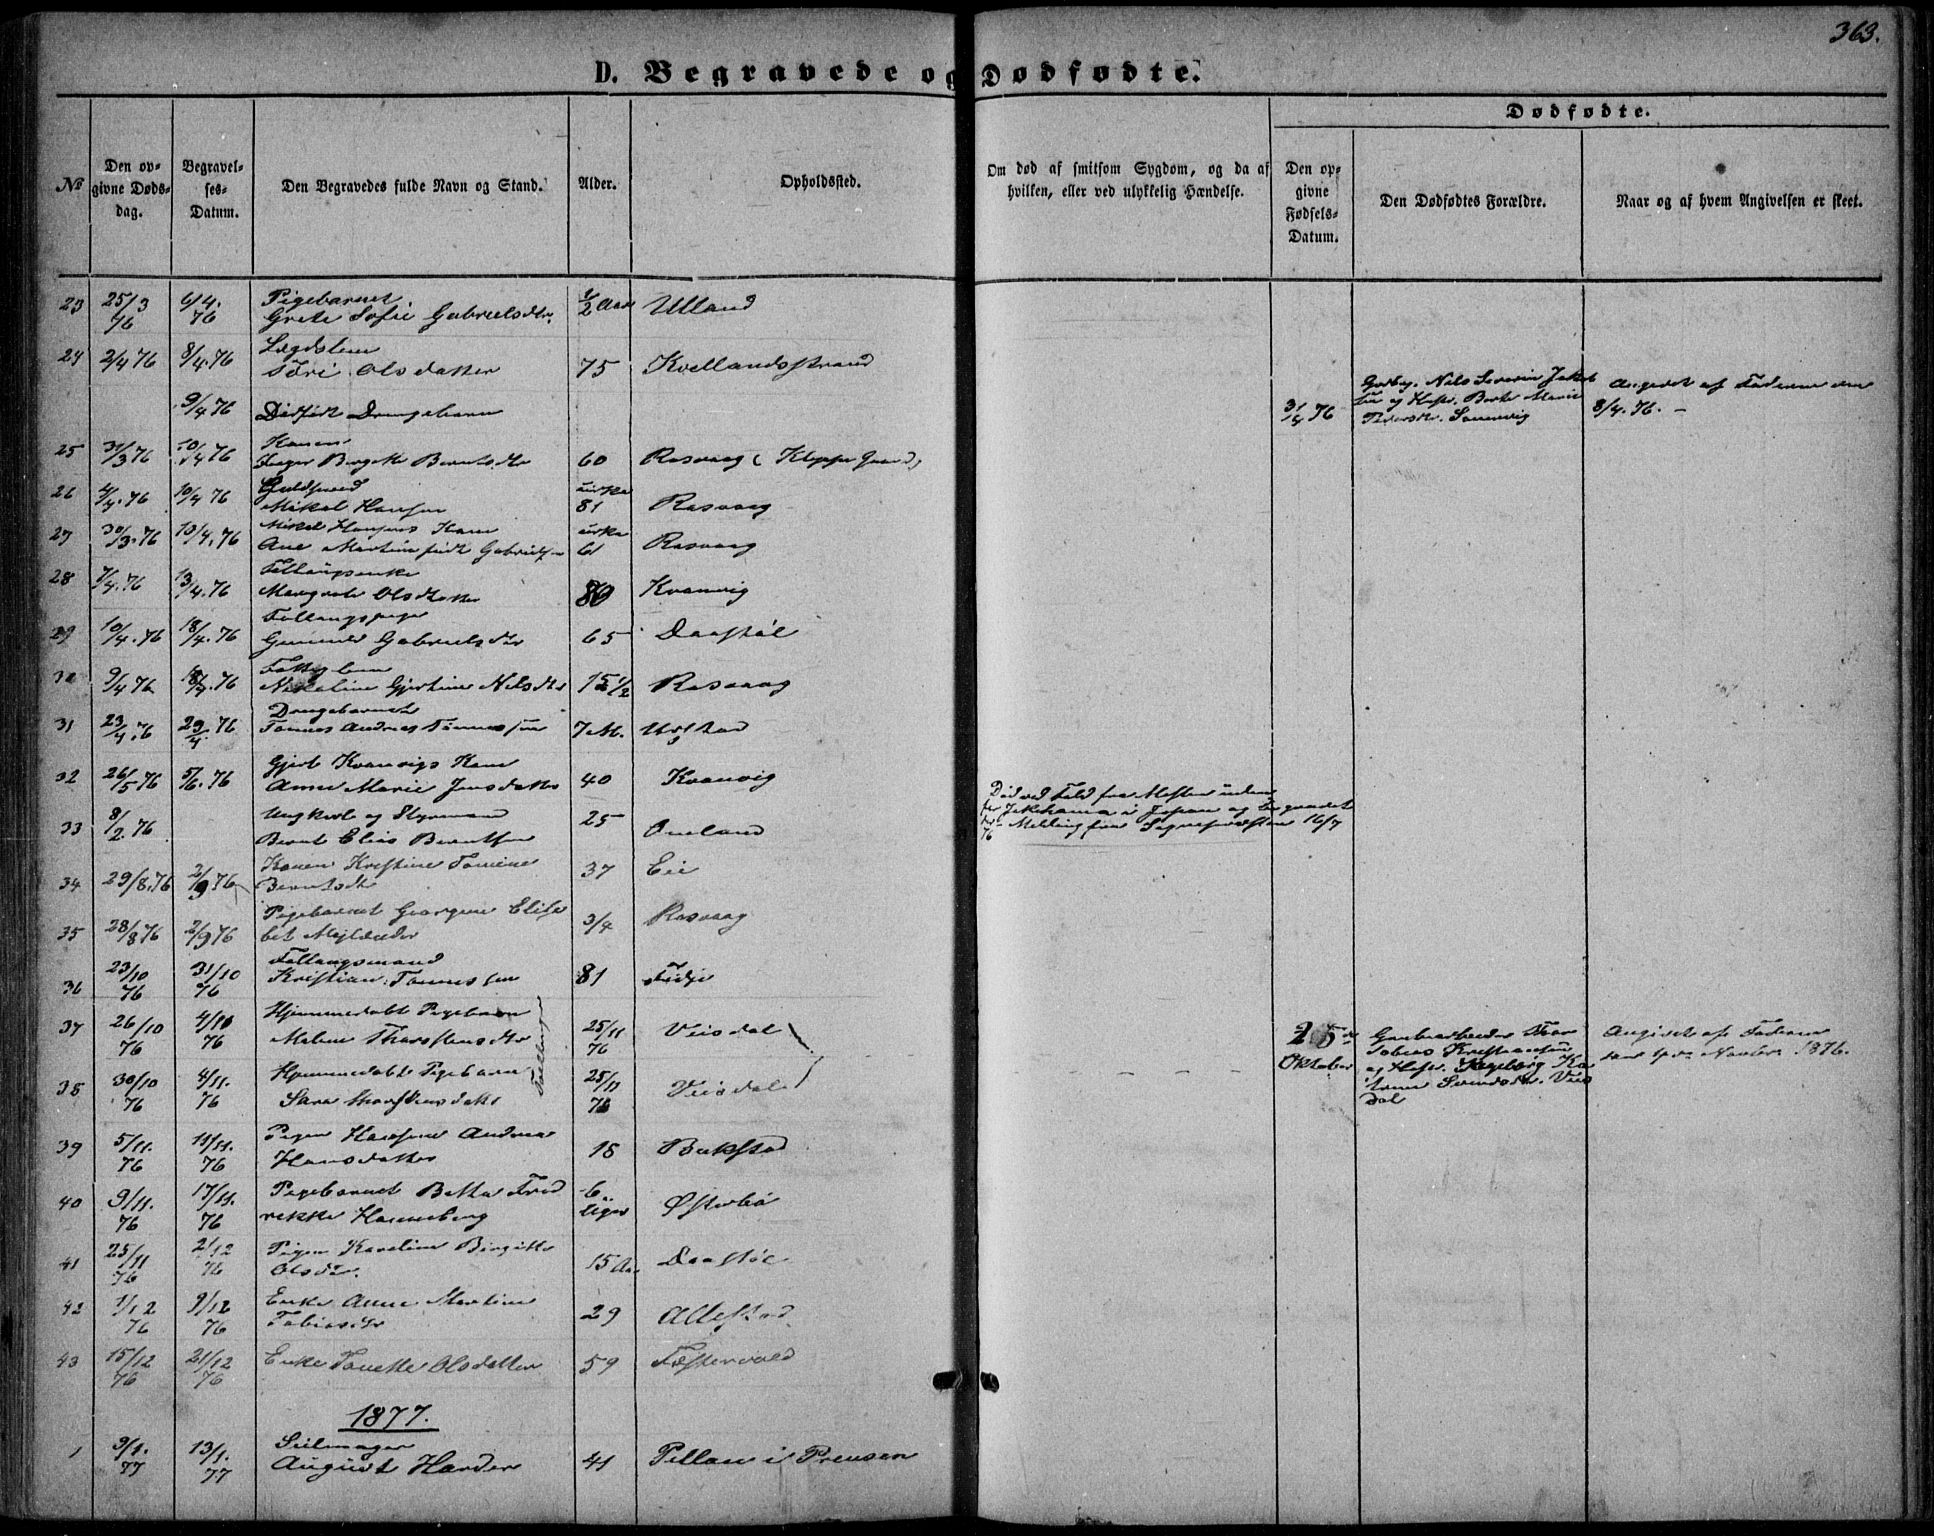 363.
D. Begravede og Dødfødte.
Dødfødte.
№
Den op-
givne Døds-
dag.
Begravel-
ses-
Datum.
Den Begravedes fulde Navn og Stand.
Alder.
Opholdssted.
Om død af smitsom Sygdom, og da af
hvilken, eller ved ulykkelig Hændelse.
Den op-
givne
Fødsels-
Datum.
Den Dødfødtes Forældre.
Naar og af hvem Angivelsen er skeet.
23 25/3 76 6/4. 76 Pigebarnet
Grete Sofie Gabrielsdtr. 1/2 Aar Ulland
24 2/4 76 8/4.76 Lægdslem
Tori Olsdatter 75 Kvellandsstrand
9/4 76 Dødfødt Drengebarn 3/4 76
Nils Severin Jakob
sen og Hustr. Berte Marie
Pedersdtr.
Angivet af Faderen den
8/4.76. —
25 31/3 76 10/4 76 Konen
Inger Bergitte Berntsdtr 60 Rasvaag (Kleppe Gaard)
26 4/4.76 10/4 76 Guldsmed
Mikal Hansen cirka 81 Rasvaag
27 30/3.76 13/4.76 Mikal Hansens Kone
Ane Martine født Gabriels cirka 61 Rasvaag
28 7/4.76 13/4.76
Margrete Olsdatter 80 Kvanvig
29 10/4.76 18/4.76
Gunnild Gabrielsdtr 65 Daastøl
30 9/4 76 18/4.76 Fattiglem
Nikoline Gjertine Nilsdtr 15 1/2 Rasvaag
31 23/4.76 29/4.76 Drengebarnet
Tønnes Andreas Tønnessen 7 M.
32 26/5 76 5/6.76 Gjert Kvanvigs Kone
Anne Marie Jensdatter 40 Kvanvig
33 8/2.76 Ungkarl og Styrmand
Bernt Elias Berntsen 25 Omland
Død ved Fald fra Masten uden
for Jokohama i Japan og begravet
Melding fra Sognepræsten 16/7
76
34 29/8.76 2/9 76 Konen Kristine Tomine
Berntsdtr 37 Eie
35 28/8 76 2/9 76 Pigebarnet Georgine Elisa
bet Mejlænder 3/4 Rasvaag
36 23/10 76 31/10 76
Kristian Tønnessen 81 Fidje
37 26/10 76 4/10 76 Hjemmedøbt Pigebarn
Malene Thorstensdtr 25/11 76 Veisdal
25de
Oktober
Tobias Kristiansen
og Hustr. Ingeborg Ka
trine Veis
dal
Angivet af Faderen
den 4de Novbr. 1876.
38 30/10 76 4/11. 76 Hjemmedøbt Pigebarn
Sara Thorstensdatter 25/10 76 Veisdal
Tvillinger
39 5/11. 76 11/11. 76 Pigen Hansine Andrea
Hansdatter 18 Bakstad
40 9/11. 76 17/11. 76 Pigebarnet Betta Fred
rekke Hanneberg 6 Uger Østerbø
41 25/11 76 2/12 76 Pigen Karoline Birgitte
Olsdtr. 15 Aar Daastøl
42 1/12 76 9/12 76 Enke Anne Martine
Tobiasdtr 29 Allestad
43 15/12 76 21/12 76 Enke Tonette Olsdatter 59 Fæstervold
1877.
1 9/1. 77 13/1. 77 Seilmager
August Harder 41 Pillau i Preusen